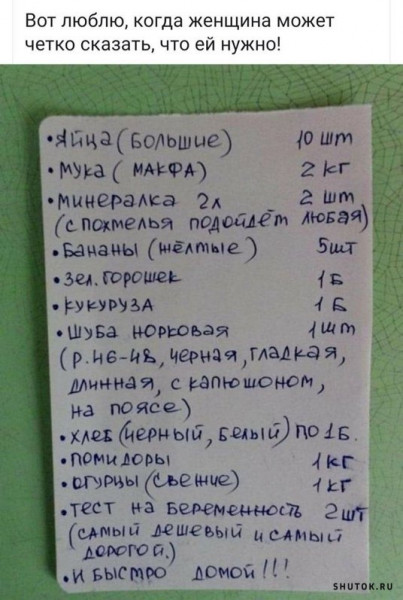 Вот люблю, когда женщина может
четко сказать, что ей нужно!
•Яйца (Большие) 10 шт
•Мука (МАКФА) 2 кг
•Минералка 2л 2 шт
(с похмелья подойдёт любая)
•Бананы (жёлтые) 5шт
•Зел. горошек 1 Б
•Кукуруза 1 Б
•Шуба норковая 1 шт
(р.46-48, чёрная, гладкая,
длинная, с капюшоном,
на поясе)
•хлеб (чёрный, белый) по 1Б.
•помидоры 1 кг
•огурцы (свежие) 1 кг
•тест на беременность 2шт
(самый дешевый и самый
дорогой.)
•И быстро домой!!!
SHUTOK.RU